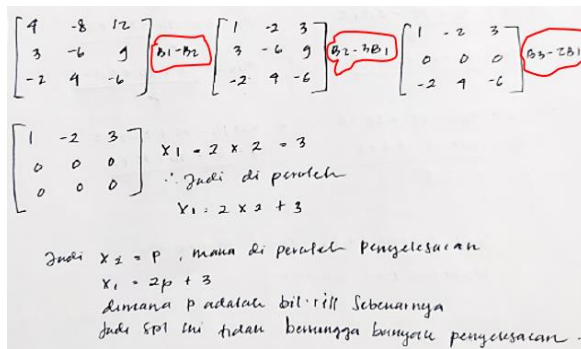 4 -8 12 1 -2 3 1 -2 3
3 -6 9 B1-B2 3 -6 9 B2-3B1 0 0 0 B3-2B1
-2 4 -6 -2 4 -6 -2 4 -6
1 -2 3
0 0 0 x1 - 2 x 2 = 3
0 0 0 ∴ Jadi di peroleh
x1 = 2 x 2 + 3
Jadi x2 = p, mana di peroleh Penyelesaian
x1 = 2p + 3
dimana p adalah bil.rill Sebenarnya
Jadi SPL ini tidak berhingga banyak penyelesaian.